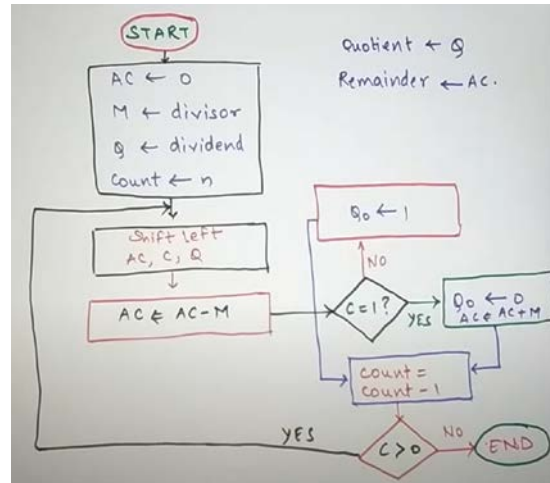 START
Quotient ← Q
Remainder ← AC.
AC ← 0
M ← divisor
Q ← dividend
Count ← n
Shift left
AC, C, Q
AC ← AC-M
Q0 ← 1
NO
C=1?
YES
Q0 ← 0
AC ← AC+M
Count =
Count - 1
YES
C>0
NO
END